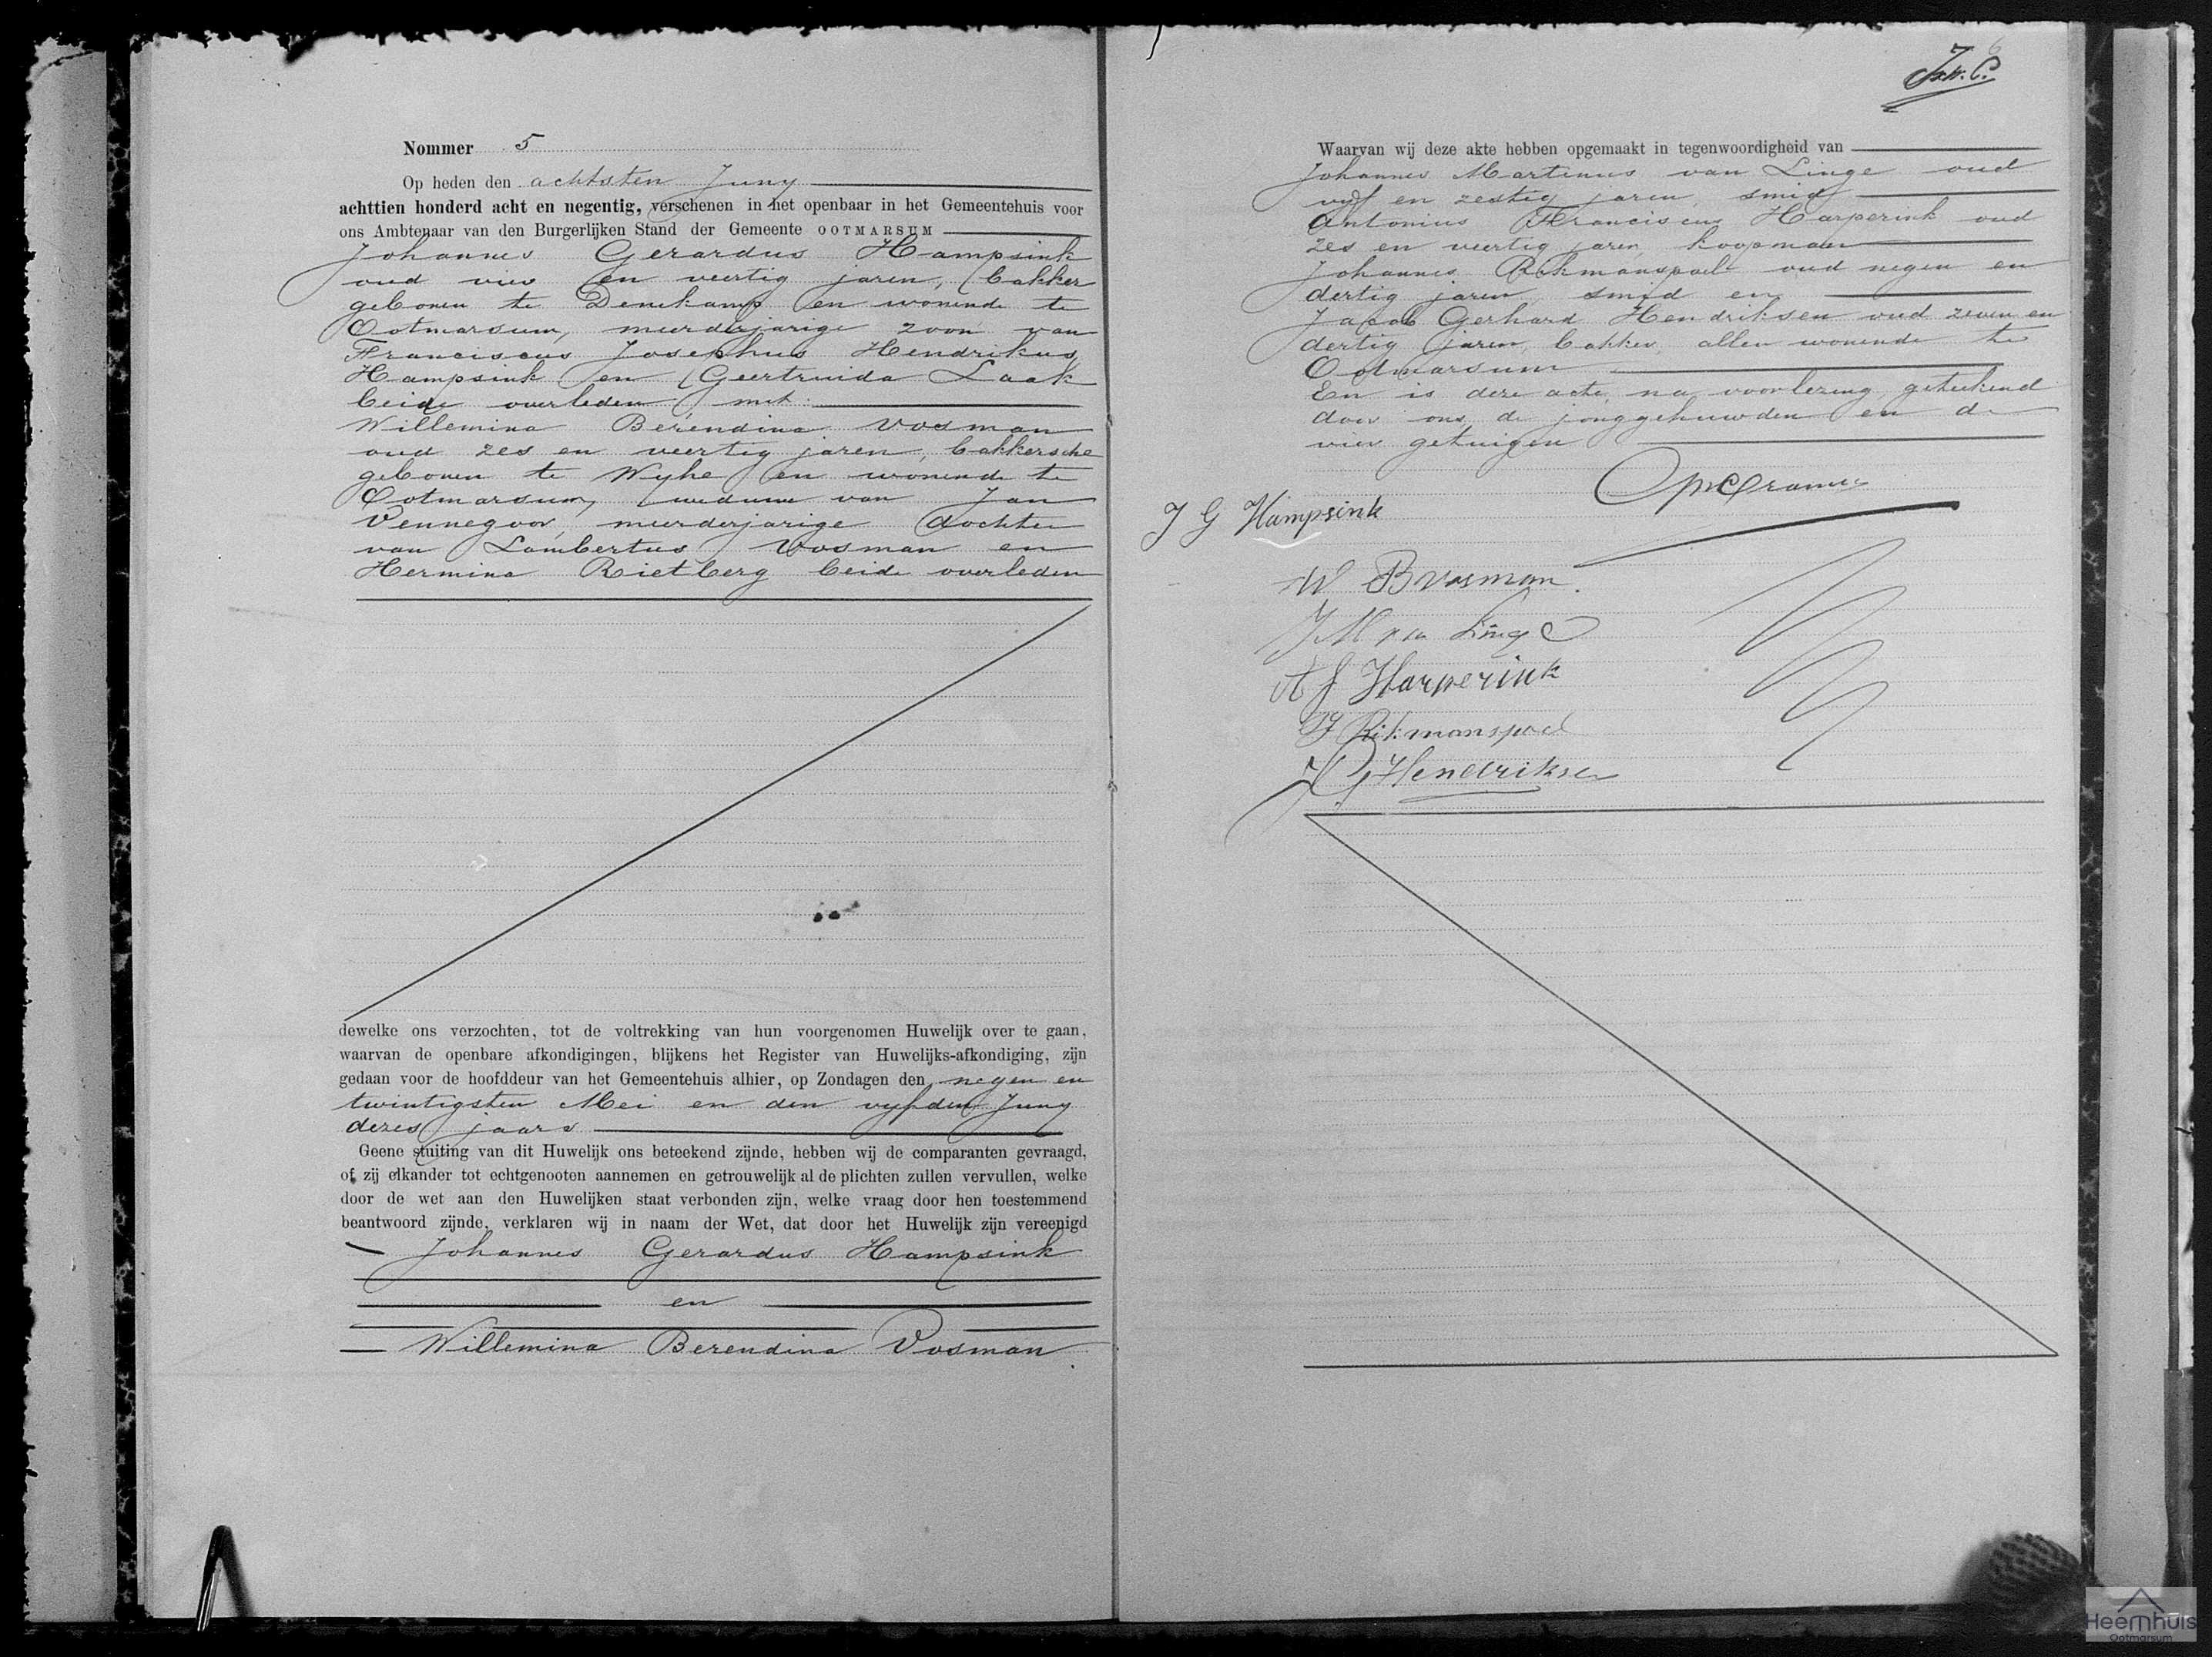 Nommer 5
Op heden den achtsten Juny
achttien honderd acht en negentig, verschenen in het openbaar in het Gemeentehuis voor
ons Ambtenaar van den Burgerlijken Stand der Gemeente OOTMARSUM
Johannes Gerardus Hampsink
oud vier en veertig jaren, bakker
geboren te Denekamp en wonende te
Ootmarsum, meerderjarige zoon van
Franciscus Josephus Hendrikus
Hampsink en Geertruida Laak
beide overleden met
Willemina Berendina Vosman
oud zes en veertig jaren, bakkersche
geboren te Wyhe en wonende te
Ootmarsum, weduwe van Jan
Vennegoor, meerderjarige dochter
van Lambertus Vosman en
Hermina Rietberg beide overleden
dewelke ons verzochten, tot de voltrekking van hun voorgenomen Huwelijk over te gaan,
waarvan de openbare afkondigingen, blijkens het Register van Huwelijks-afkondiging, zijn
gedaan voor de hoofddeur van het Gemeentehuis alhier, op Zondagen den negen en
twintigsten Mei en den vyfden Juny
dezes jaars
Geene stuiting van dit Huwelijk ons beteekend zijnde, hebben wij de comparanten gevraagd,
of zij elkander tot echtgenooten aannemen en getrouwelijk al de plichten zullen vervullen, welke
door de wet aan den Huwelijken staat verbonden zijn, welke vraag door hen toestemmend
beantwoord zijnde, verklaren wij in naam der Wet, dat door het Huwelijk zijn vereenigd
Johannes Gerardus Hampsink
en
Willemina Berendina Vosman
6
Waarvan wij deze akte hebben opgemaakt in tegenwoordigheid van
Johannes Martinus van Linge oud
vyf en zestig jaren, smid
Antonius Franciscus Harperink oud
zes en veertig jaren, koopman
Johannes Rikmanspoel oud negen en
dertig jaren, smid en
Jacob Gerhard Hendriksen oud zeven en
dertig jaren, bakker, allen wonende te
Ootmarsum
En is deze acte, na voorlezing, geteekend
door ons, de jonggehuwden en de
vier getuigen
J G Hampsink
W B Vosman.
J M van Linge
A F Harperink
J Rikmanspoel
J G Hendriksen
Heemhuis
Ootmarsum